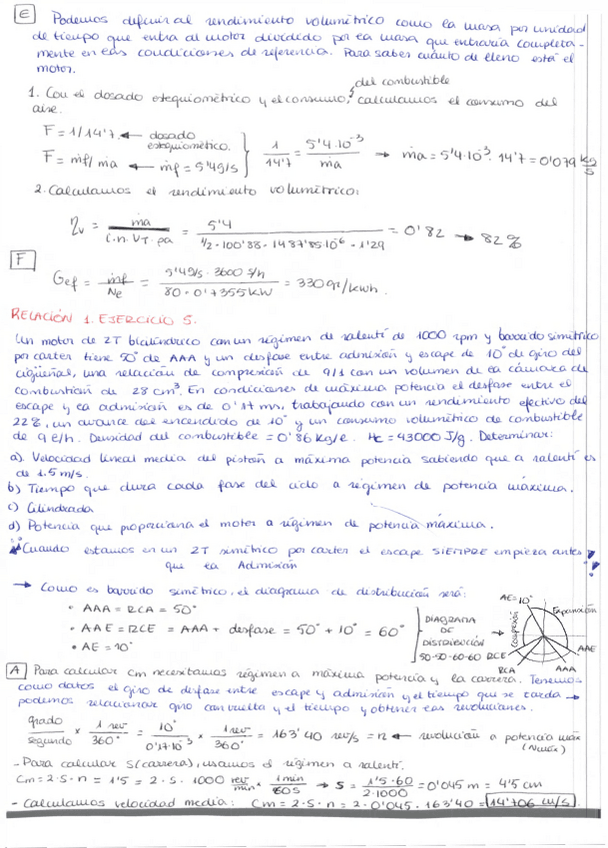 E Podemos definir al rendimiento volumétrico como la masa por unidad
de tiempo que entra al motor dividido por la masa que entraría completa-
mente en las condiciones de referencia. Para saber cuánto de lleno está el
motor.
1. Con el dosado estequiométrico y el consumo, del combustible calculamos el consumo del
aire.
F = 1/14'7. ← dosado estequiométrico.
F = ṁf/ṁa ← ṁf = 5'4g/s } 1/14'7 = 5'4·10⁻³/ṁa → ṁa = 5'4·10⁻³·14'7 = 0'079 kg/s
2. Calculamos el rendimiento volumétrico:
ηv = ṁa/(i.n.VT.ρa) = 5'4/(1/2·100'88·1487'85·10⁻⁶·1'29) = 0'82 → 82%
F
Gef = ṁf/Ne = 5'4g/s·3600 s/h/(80·0'7355kW) = 330gr/kwh.
RELACIÓN 1. EJERCICIO 5.
Un motor de 2T bicilíndrico con un régimen de ralentí de 1000 rpm y barrido simétrico
por carter tiene 50° de AAA y un desfase entre admisión y escape de 10° de giro del
cigüeñal, una relación de compresión de 9/1 con un volumen de la cámara de
combustión de 28 cm³. En condiciones de máxima potencia el desfase entre el
escape y la admisión es de 0'17 ms, trabajando con un rendimiento efectivo del
22%, un avance del encendido de 10° y un consumo volumétrico de combustible
de 9 l/h. Densidad del combustible = 0'86 kg/l. Hc = 43000 J/g. Determinar:
a). Velocidad lineal media del pistón a máxima potencia sabiendo que a ralentí es
de 1.5 m/s.
b) Tiempo que dura cada fase del ciclo a régimen de potencia máxima.
c) Cilindrada
d) Potencia que proporciona el motor a régimen de potencia máxima.
Cuando estamos en un 2T simétrico por carter el escape SIEMPRE empieza antes
que la Admisión
→ Como es barrido simétrico, el diagrama de distribución será:
• AAA = RCA = 50°
• AAE = RCE = AAA + desfase = 50° + 10° = 60°
• AE = 10°
DIAGRAMA
DE
DISTRIBUCIÓN
50-50-60-60
AE=10°
Expansión
Compresión
AAE
RCE
RCA
AAA
A Para calcular cm necesitamos régimen a máxima potencia y la carrera. Tenemos
como datos el giro de desfase entre escape y admisión y el tiempo que se tarda →
podemos relacionar giro con vuelta y el tiempo y obtener las revoluciones.
grado/segundo × 1 rev/360° = 10°/0'17·10⁻³ × 1 rev/360° = 163'40 rev/s = n ← revolución a potencia máx
(Nmáx)
- Para calcular S(carrera), usamos el régimen a ralentí.
Cm = 2·S·n = 1'5 = 2·S·1000 rev/min × 1min/60s → S = 1'5·60/2·1000 = 0'045 m = 4'5 cm
- Calculamos velocidad media: Cm = 2·S·n = 2·0'045·163'40 = 14'706 m/s.